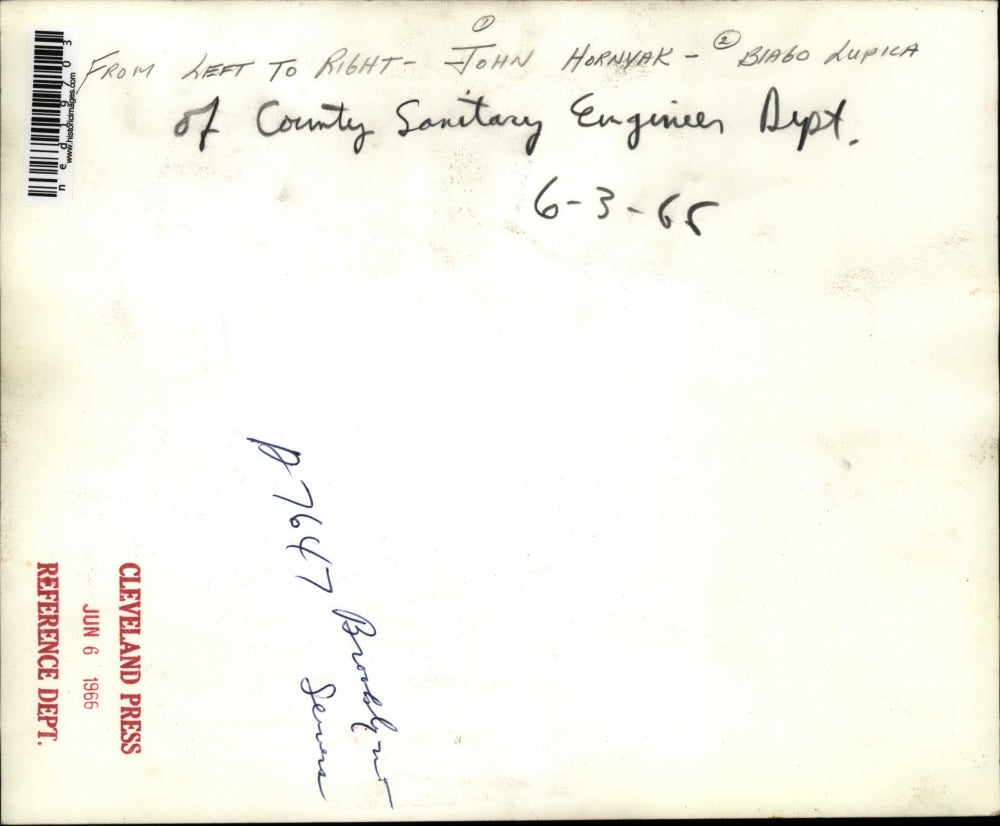 FROM LEFT TO RIGHT- ① JOHN HORNYAK - ② BIAGO LUPICA
of County Sanitary Engineer Dept.
6-3-65
ned19703
www.historicimages.com
D-7647 Brooklyn
Sewers
CLEVELAND PRESS
JUN 6 1966
REFERENCE DEPT.